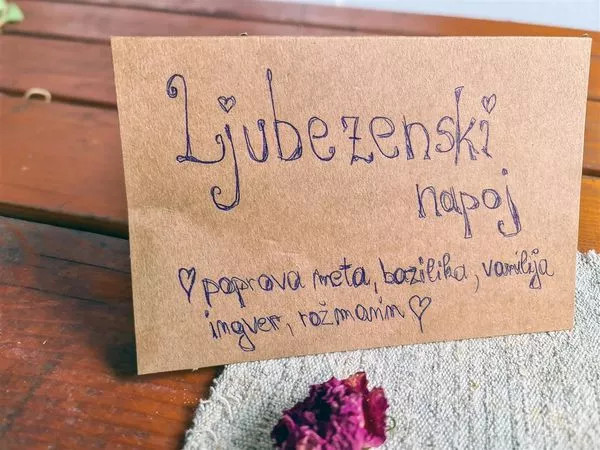 Ljubezenski
napoj
♡ poprova meta, bazilika, vanilija
ingver, rožmarin ♡